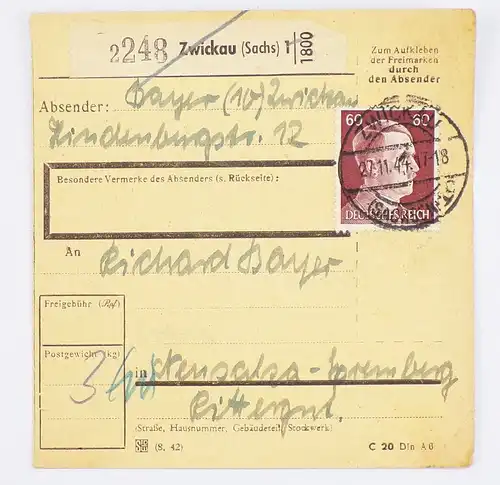 2248 Zwickau (Sachs) 1
1800
Zum Aufkleben
der Freimarken
durch
den Absender
Absender: Bayer (10) Zwickau
Lindenburgstr. 12
60 60
DEUTSCHES REICH
ZWICKAU
27.11.44.17-18
(SACHS)
Besondere Vermerke des Absenders (s. Rückseite):
An Richard Bayer
Freigebühr (Rpf)
Postgewicht (kg)
3
in Neusalza-Spremberg
Rittergut.
(Straße, Hausnummer, Gebäudeteil, Stockwerk)
(8. 42)
C 20 Din A6